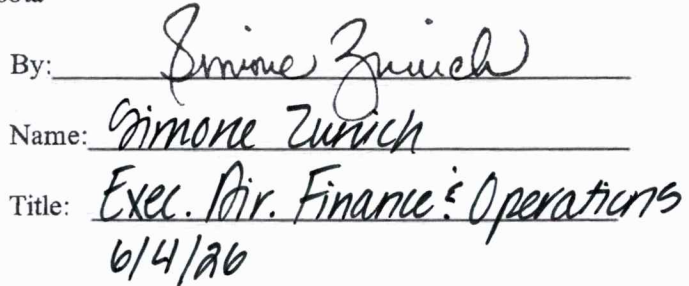 By: Simone Zunich
Name: Simone Zunich
Title: Exec. Dir. Finance & Operations
6/4/26